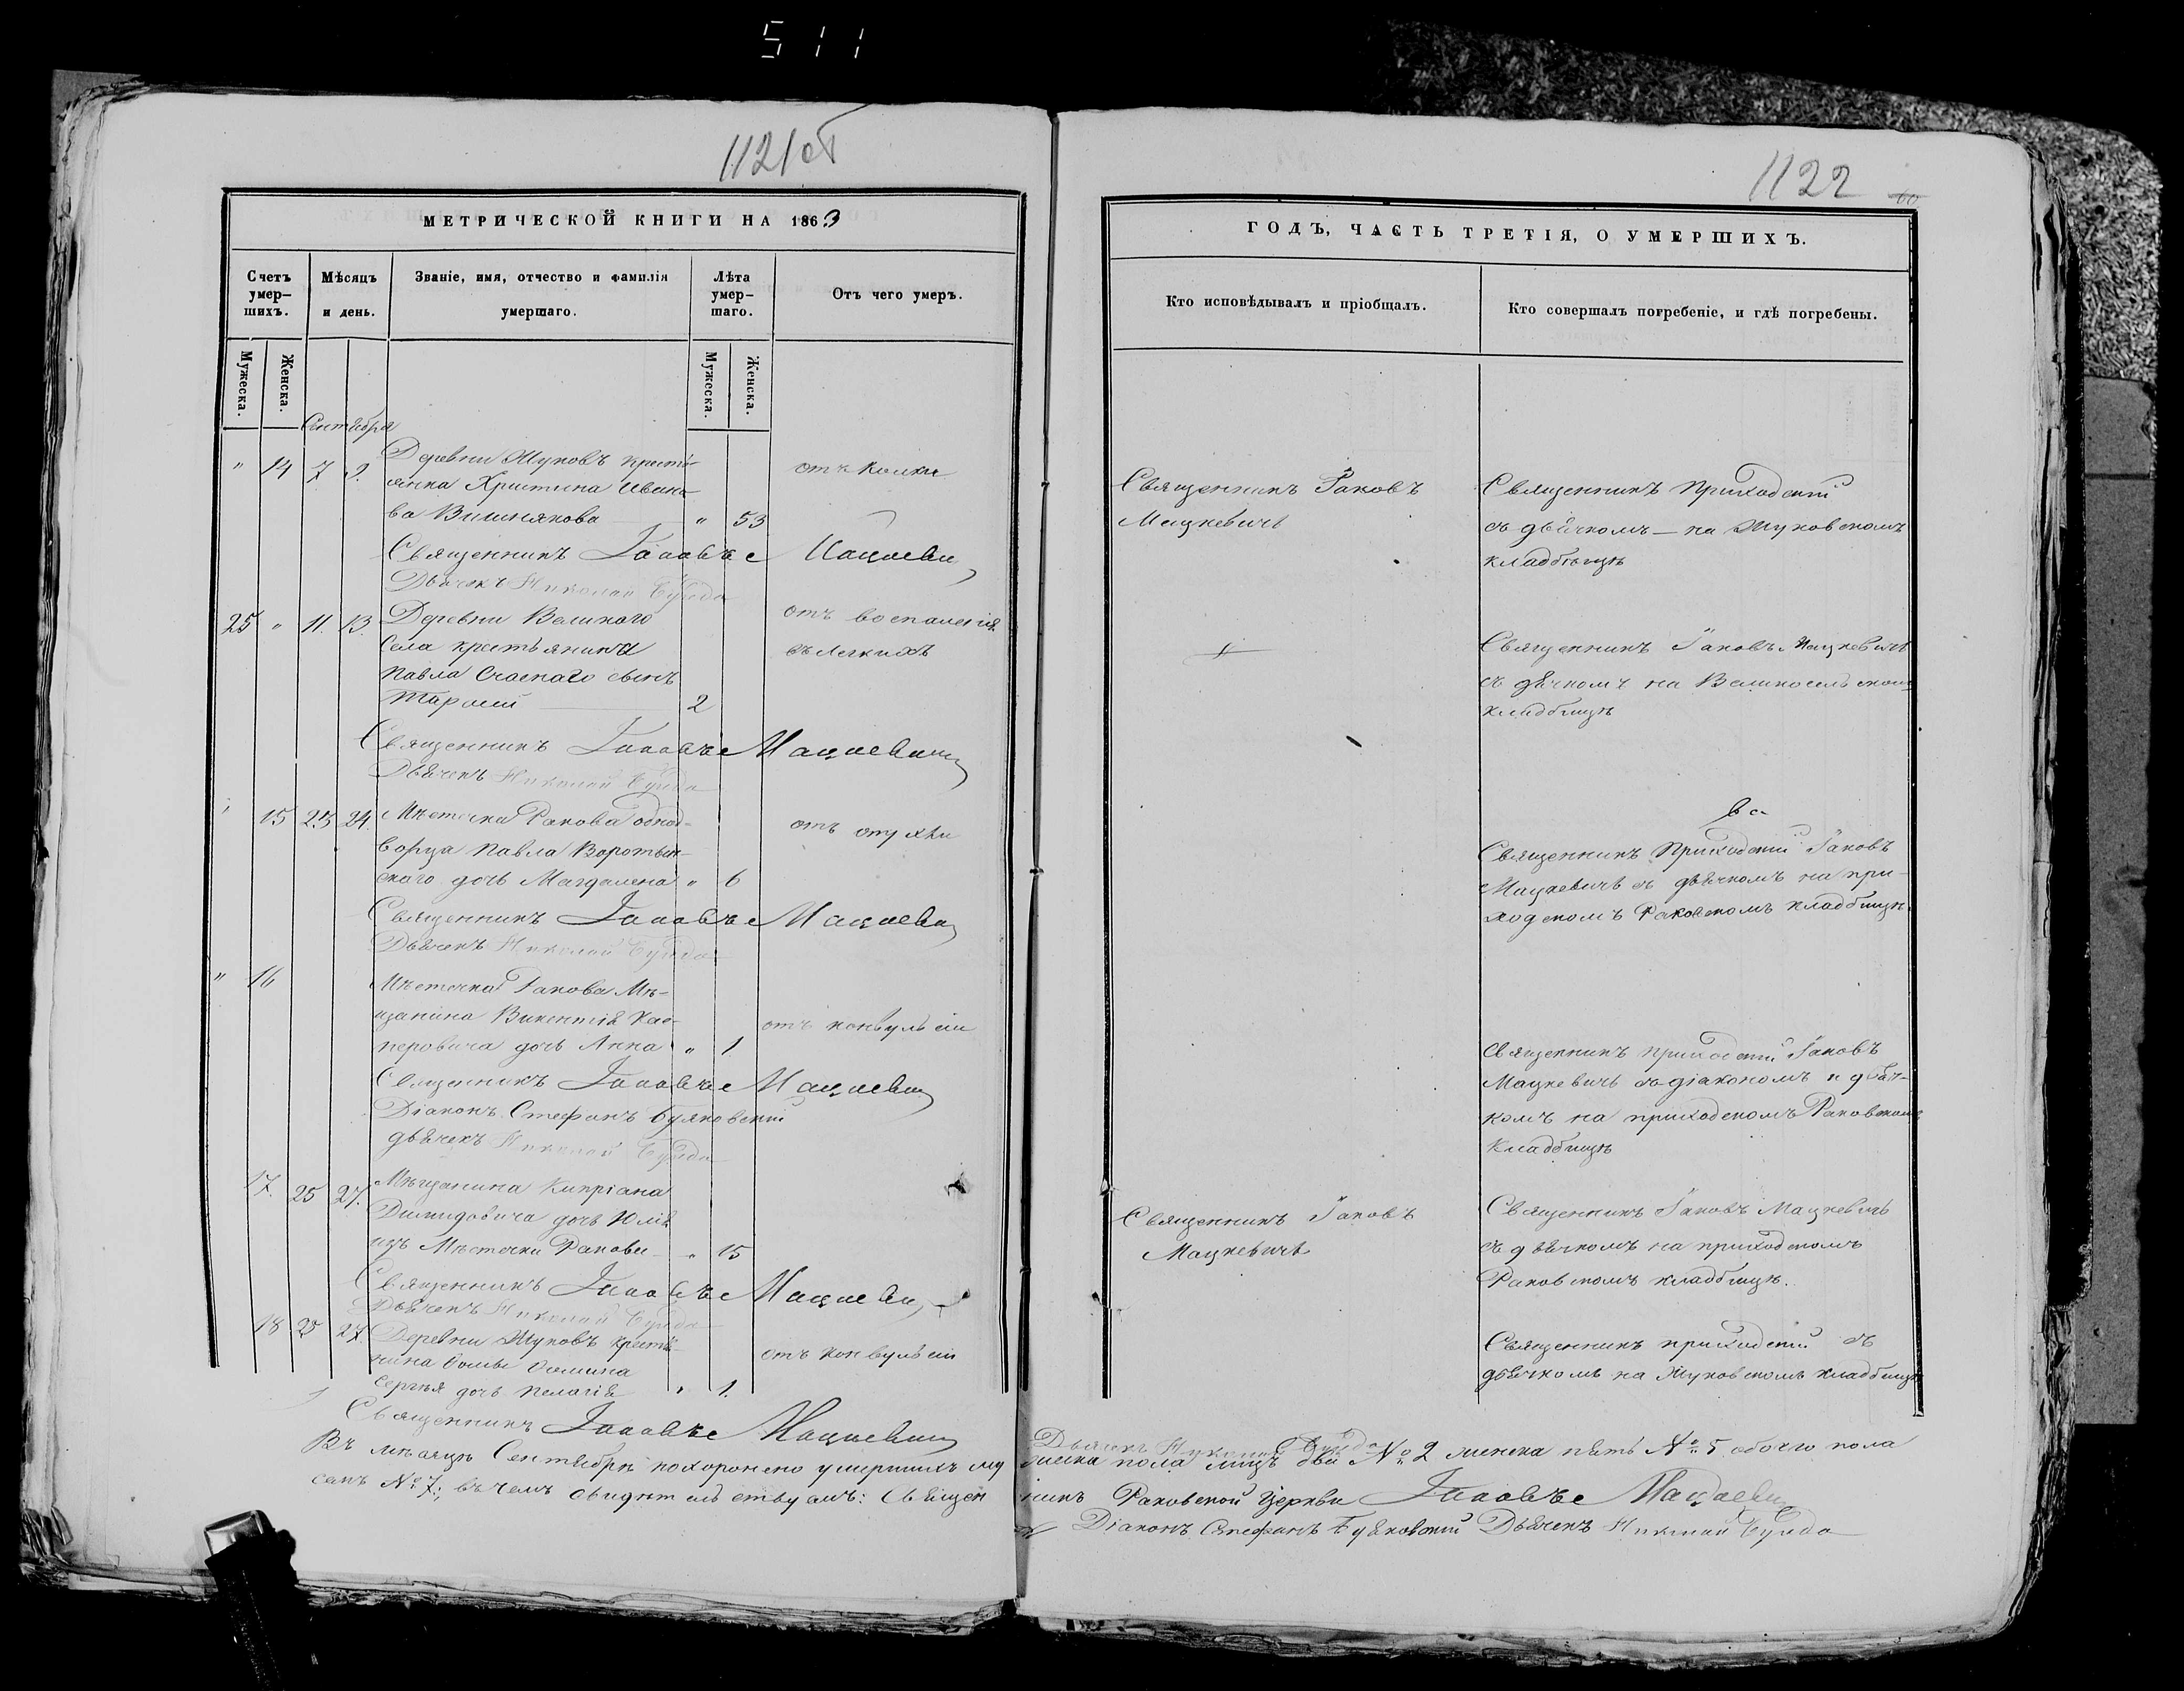 511
1121об
МЕТРИЧЕСКОЙ КНИГИ НА 1863
Счетъ умер-
шихъ.
Мѣсяцъ
и день.
Званіе, имя, отчество и фамилія
умершаго.
Лѣта
умер-
шаго.
Отъ чего умеръ.
Мужеска.
Женска.
Мужеска.
Женска.
Сентября
" 14 7 9. Деревни Жуковъ кресть-
янка Христина Ивано-
ва Вишнякова " 53
отъ колки
Священникъ Іаковъ Мацкевичъ
Дьячекъ Николай
25 " 11. 13. Деревни Великаго
села крестьянина
Павла сынъ
2
отъ воспаленія
въ легкихъ
Священникъ Іаковъ Мацкевичъ
Дьячекъ Николай
" 15 23 24. Мѣстечка Ракова однод-
ворца Павла Воротын-
скаго дочь Магдалена " 6
отъ опухли
Священникъ Іаковъ Мацкевичъ
Дьячекъ Николай
" 16
Мѣстечка Ракова Мѣ-
щанина Викентія Кас-
перовича дочь Анна " 1
отъ конвульсіи
Священникъ Іаковъ Мацкевичъ
Діаконъ Стефанъ Буяковскій
дьячекъ Николай
17. 25 27. Мѣщанина Кипріана
Димидовича дочь Юлія
изъ Мѣстечка Ракова " 15
Священникъ Іаковъ Мацкевичъ
Дьячекъ Николай
18 25 27. Деревни Жуковъ крестья-
нина Фомы
дочь Пелагія " 1.
отъ конвульсіи
Священникъ Іаковъ Мацкевичъ
1122
60
ГОДЪ, ЧАСТЬ ТРЕТІЯ, О УМЕРШИХЪ.
Кто исповѣдывалъ и пріобщалъ.
Кто совершалъ погребеніе, и гдѣ погребены.
Священникъ Іаковъ
Мацкевичъ
Священникъ Приходскій
съ дьячкомъ — на Жуковскомъ
кладбищѣ
Священникъ Іаковъ Мацкевичъ
съ дьячкомъ на Великосельском
кладбищѣ
Священникъ Приходскій Іаковъ
Мацкевичъ съ дьячкомъ на при-
ходскомъ Раковскомъ кладбищѣ.
Священникъ приходскій Іаковъ
Мацкевичъ съ діакономъ и дьяч-
комъ на приходскомъ Раковскомъ
кладбищѣ
Священникъ Іаковъ
Мацкевичъ
Священникъ Іаковъ Мацкевичъ
съ дьячкомъ на приходскомъ
Раковскомъ кладбищѣ.
Священникъ приходскій съ
дьячкомъ на Жуковскомъ кладбищѣ
Дьячекъ Николай
Въ мѣсяцѣ Сентябрѣ похоронено умершихъ му жеска пола лицъ два № 2 женска пять № 5. обоего пола
семь № 7; въ чемъ свидѣтельствуемъ: Священ никъ Раковской Церкви Іаковъ Мацкевичъ
Діаконъ Стефанъ Буяковскій Дьячекъ Николай